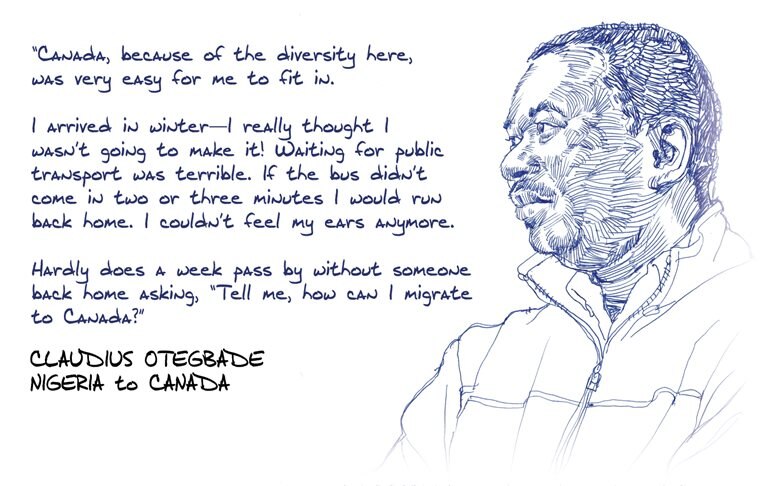 "Canada, because of the diversity here,
was very easy for me to fit in.
I arrived in winter—I really thought I
wasn't going to make it! Waiting for public
transport was terrible. If the bus didn't
come in two or three minutes I would run
back home. I couldn't feel my ears anymore.
Hardly does a week pass by without someone
back home asking, "Tell me, how can I migrate
to Canada?"
CLAUDIUS OTEGBADE
NIGERIA to CANADA